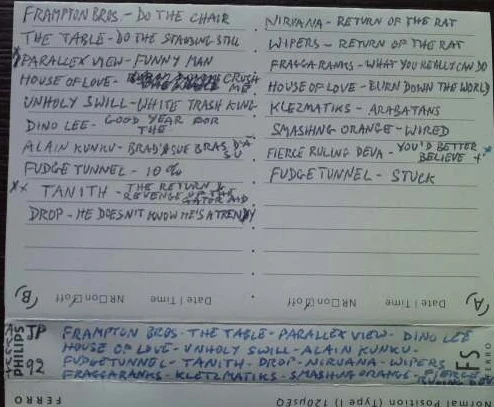 FRAMPTON BROS - DO THE CHAIR
THE TABLE - DO THE STANDING STILL
* PARALLEX VIEW - FUNNY MAN
HOUSE OF LOVE - CRUSH ME
UNHOLY SWILL - WHITE TRASH KING
DINO LEE - GOOD YEAR FOR THE
ALAIN KUNKU -
FUDGETUNNEL - 10%
** TANITH - THE RETURN & REVENGE OF THE GATOR AID
DROP - HE DOESN'T KNOW HE'S A TRENDY
NIRVANA - RETURN OF THE RAT
WIPERS - RETURN OF THE RAT
FRAGGARANKS - WHAT YOU REALLY CAN DO
HOUSE OF LOVE - BURN DOWN THE WORLD
KLEZMATIKS - ARABATANS
SMASHNG ORANGE - WIRED
FIERCE RULING DEVA - YOU'D BETTER BELIEVE
FUDGETUNNEL - STUCK
B) NR □ on □ off Date | Time
A) NR □ on □ off Date | Time
PHILIPS
JP
92
FRAMPTON BROS - THE TABLE - PARALLEX VIEW - DINO LEE
HOUSE OF LOVE - UNHOLY SWILL - ALAIN KUNKU -
FUDGETUNNEL - TANITH - DROP - NIRVANA - WIPERS
FRAGGARANKS - KLETZMATIKS - SMASHNG ORANGE - FIERCE
FS
FERRO
FERRO
Normal Position (Type I) 120µSEQ